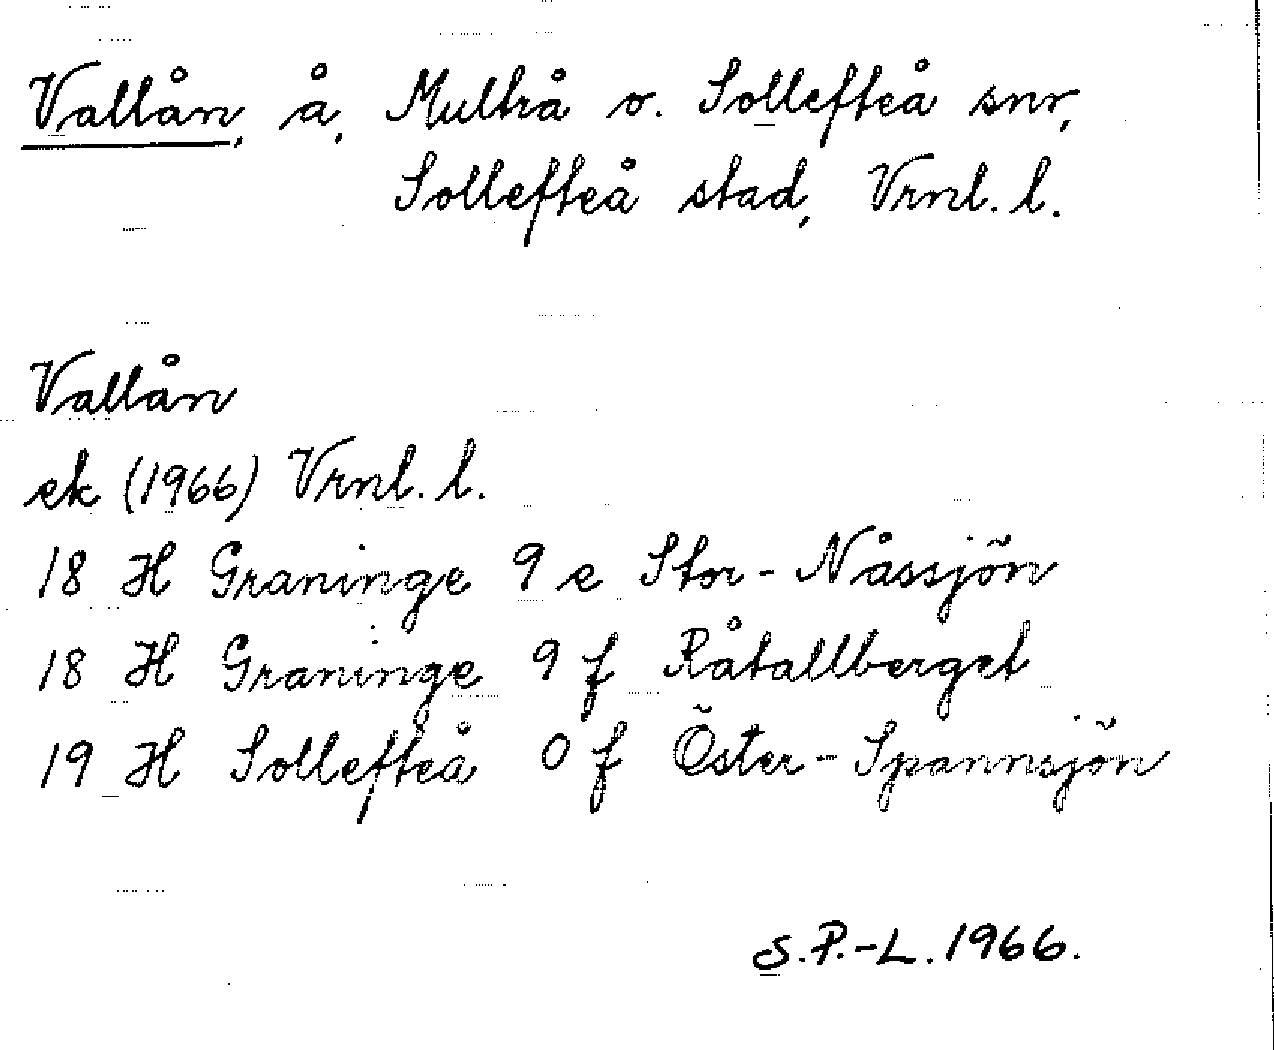 Vallån, å, Multrå o. Sollefteå snr,
Sollefteå stad, Vrnl. l.
Vallån
ek (1966) Vrnl. l.
18 H Graninge 9 e Stor-Nåssjön
18 H Graninge 9 f Råtallberget
19 H Sollefteå 0 f Öster-Spannsjön
S.P.-L. 1966.